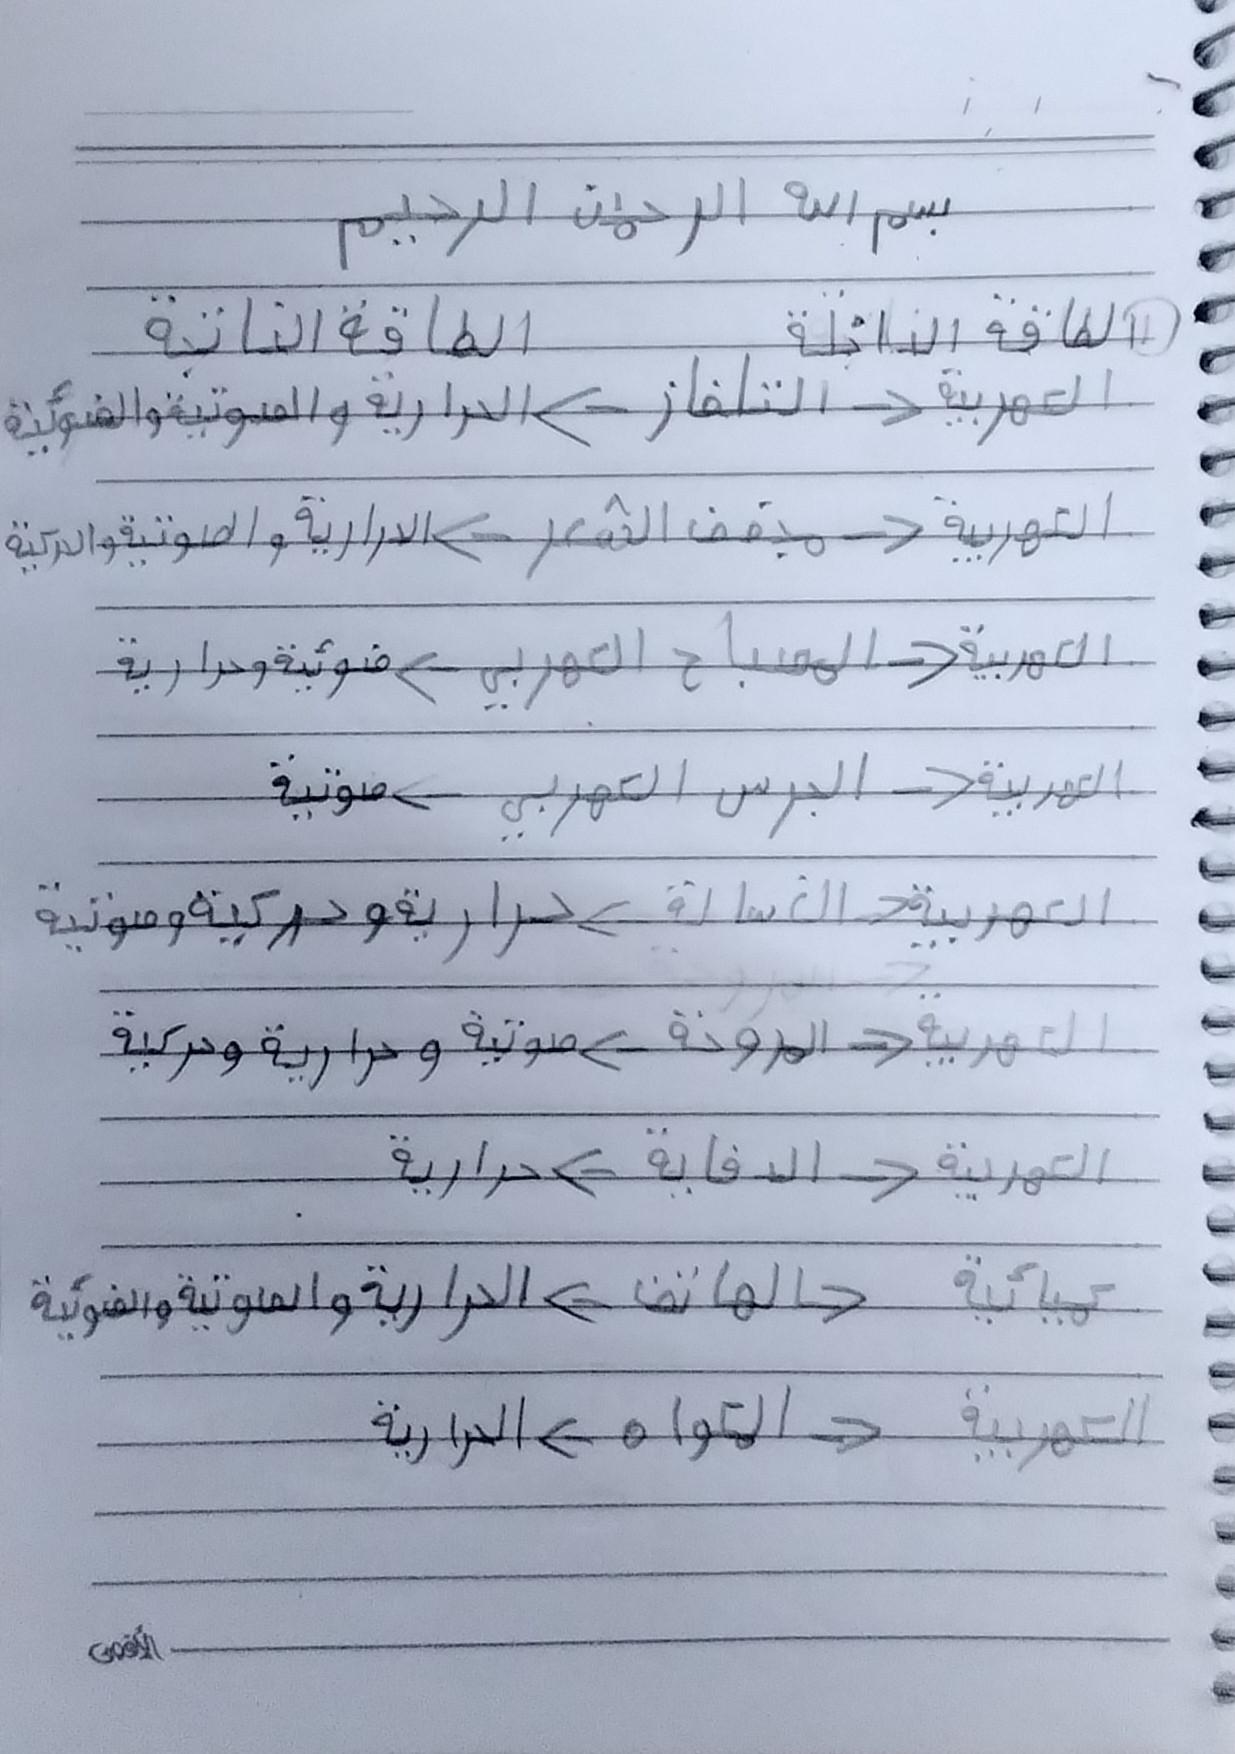 بسم الله الرحمٰن الرحيم
١) الطاقة الداخلة الطاقة الناتجة
الكهربية <- التلفاز -> الحرارية والصوتية والضوئية
الكهربية <- مجفف الشعر -> الحرارية والصوتية والحركية
الكهربية <- المصباح الكهربي -> ضوئية وحرارية
الكهربية <- الجرس الكهربي -> صوتية
الكهربية <- الغسالة -> حرارية وحركية وصوتية
الكهربية <- المروحة -> صوتية وحرارية وحركية
الكهربية <- الدفاية -> حرارية
كميائية <- الهاتف -> الحرارية والصوتية والضوئية
الكهربية <- المكواه -> الحرارية
الأقصى